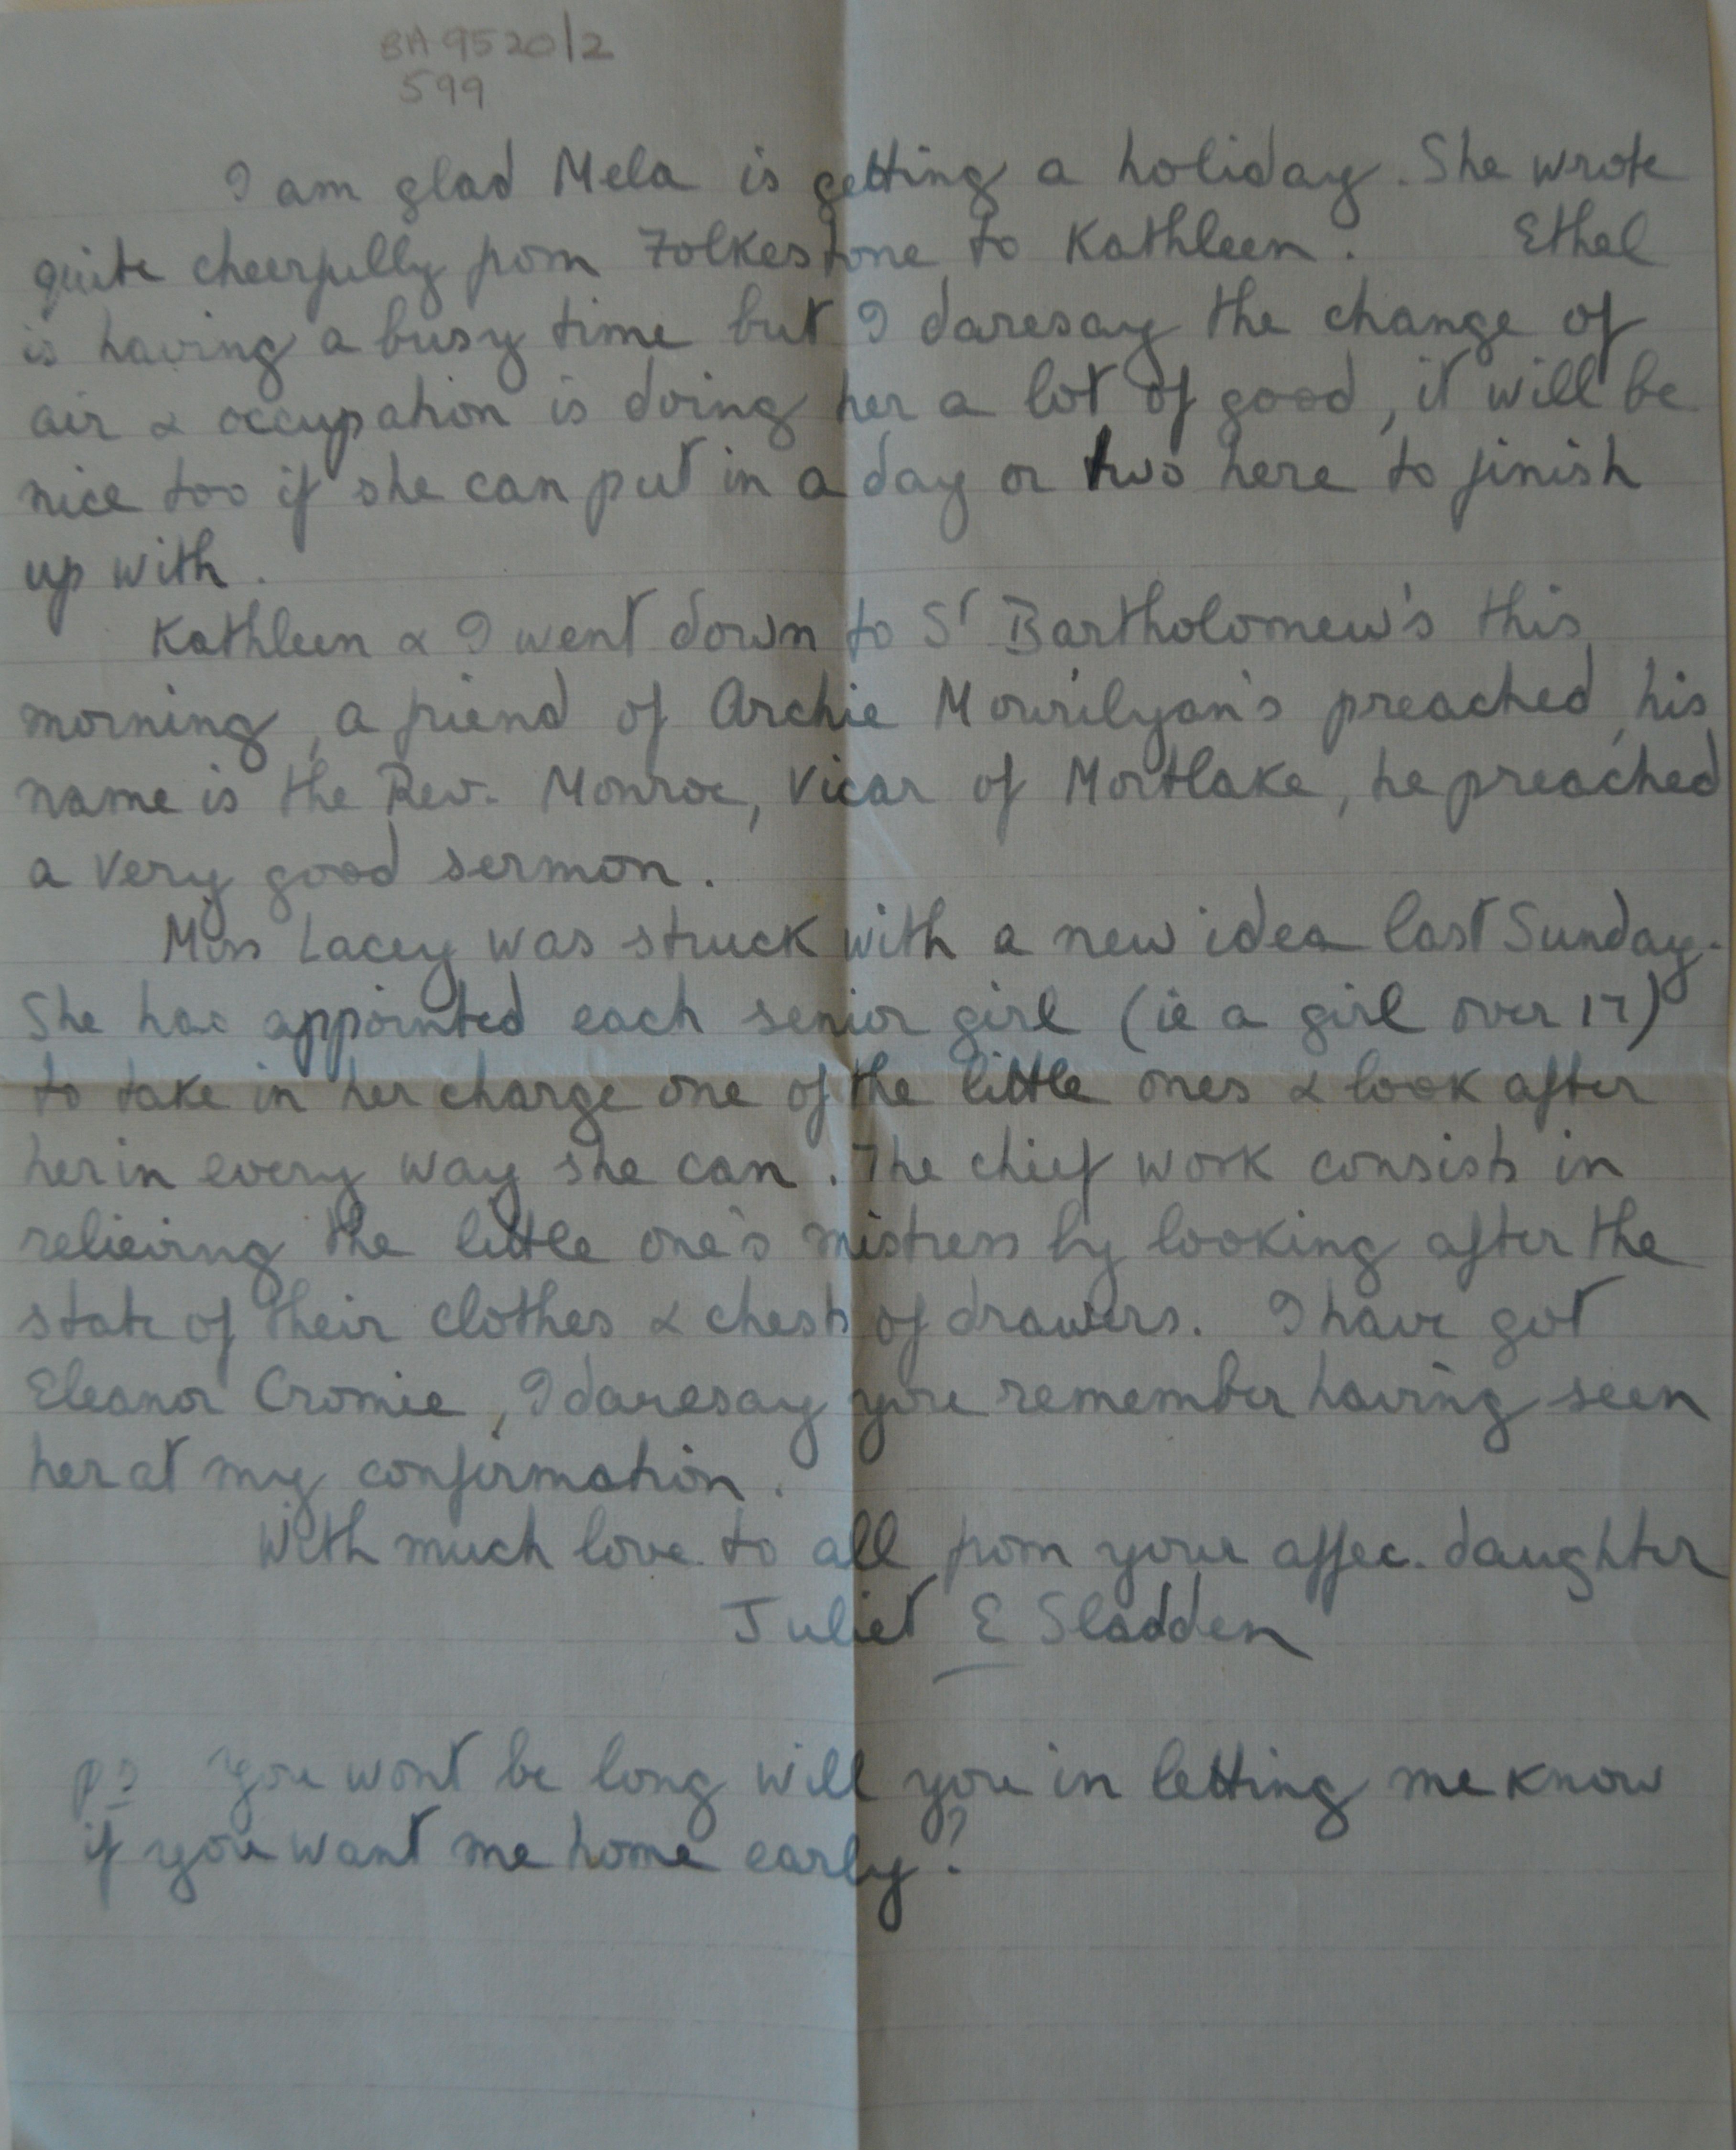 BA 9520/2
599
I am glad Mela is getting a holiday. She wrote
quite cheerfully from Folkestone to Kathleen. Ethel
is having a busy time but I daresay the change of
air & occupation is doing her a lot of good, it will be
nice too if she can put in a day or two here to finish
up with.
Kathleen & I went down to St Bartholomew's this
morning, a friend of Archie Mourilyan's preached, his
name is the Rev. Monroe, Vicar of Mortlake, he preached
a very good sermon.
Miss Lacey was struck with a new idea last Sunday.
She has appointed each senior girl (ie a girl over 17)
to take in her charge one of the little ones & look after
her in every way she can. The chief work consists in
relieving the little one's mistress by looking after the
state of their clothes & chests of drawers. I have got
Eleanor Cromie, I daresay you remember having seen
her at my confirmation.
With much love to all from your affec. daughter
Juliet E Sladden
PS You wont be long will you in letting me know
if you want me home early?